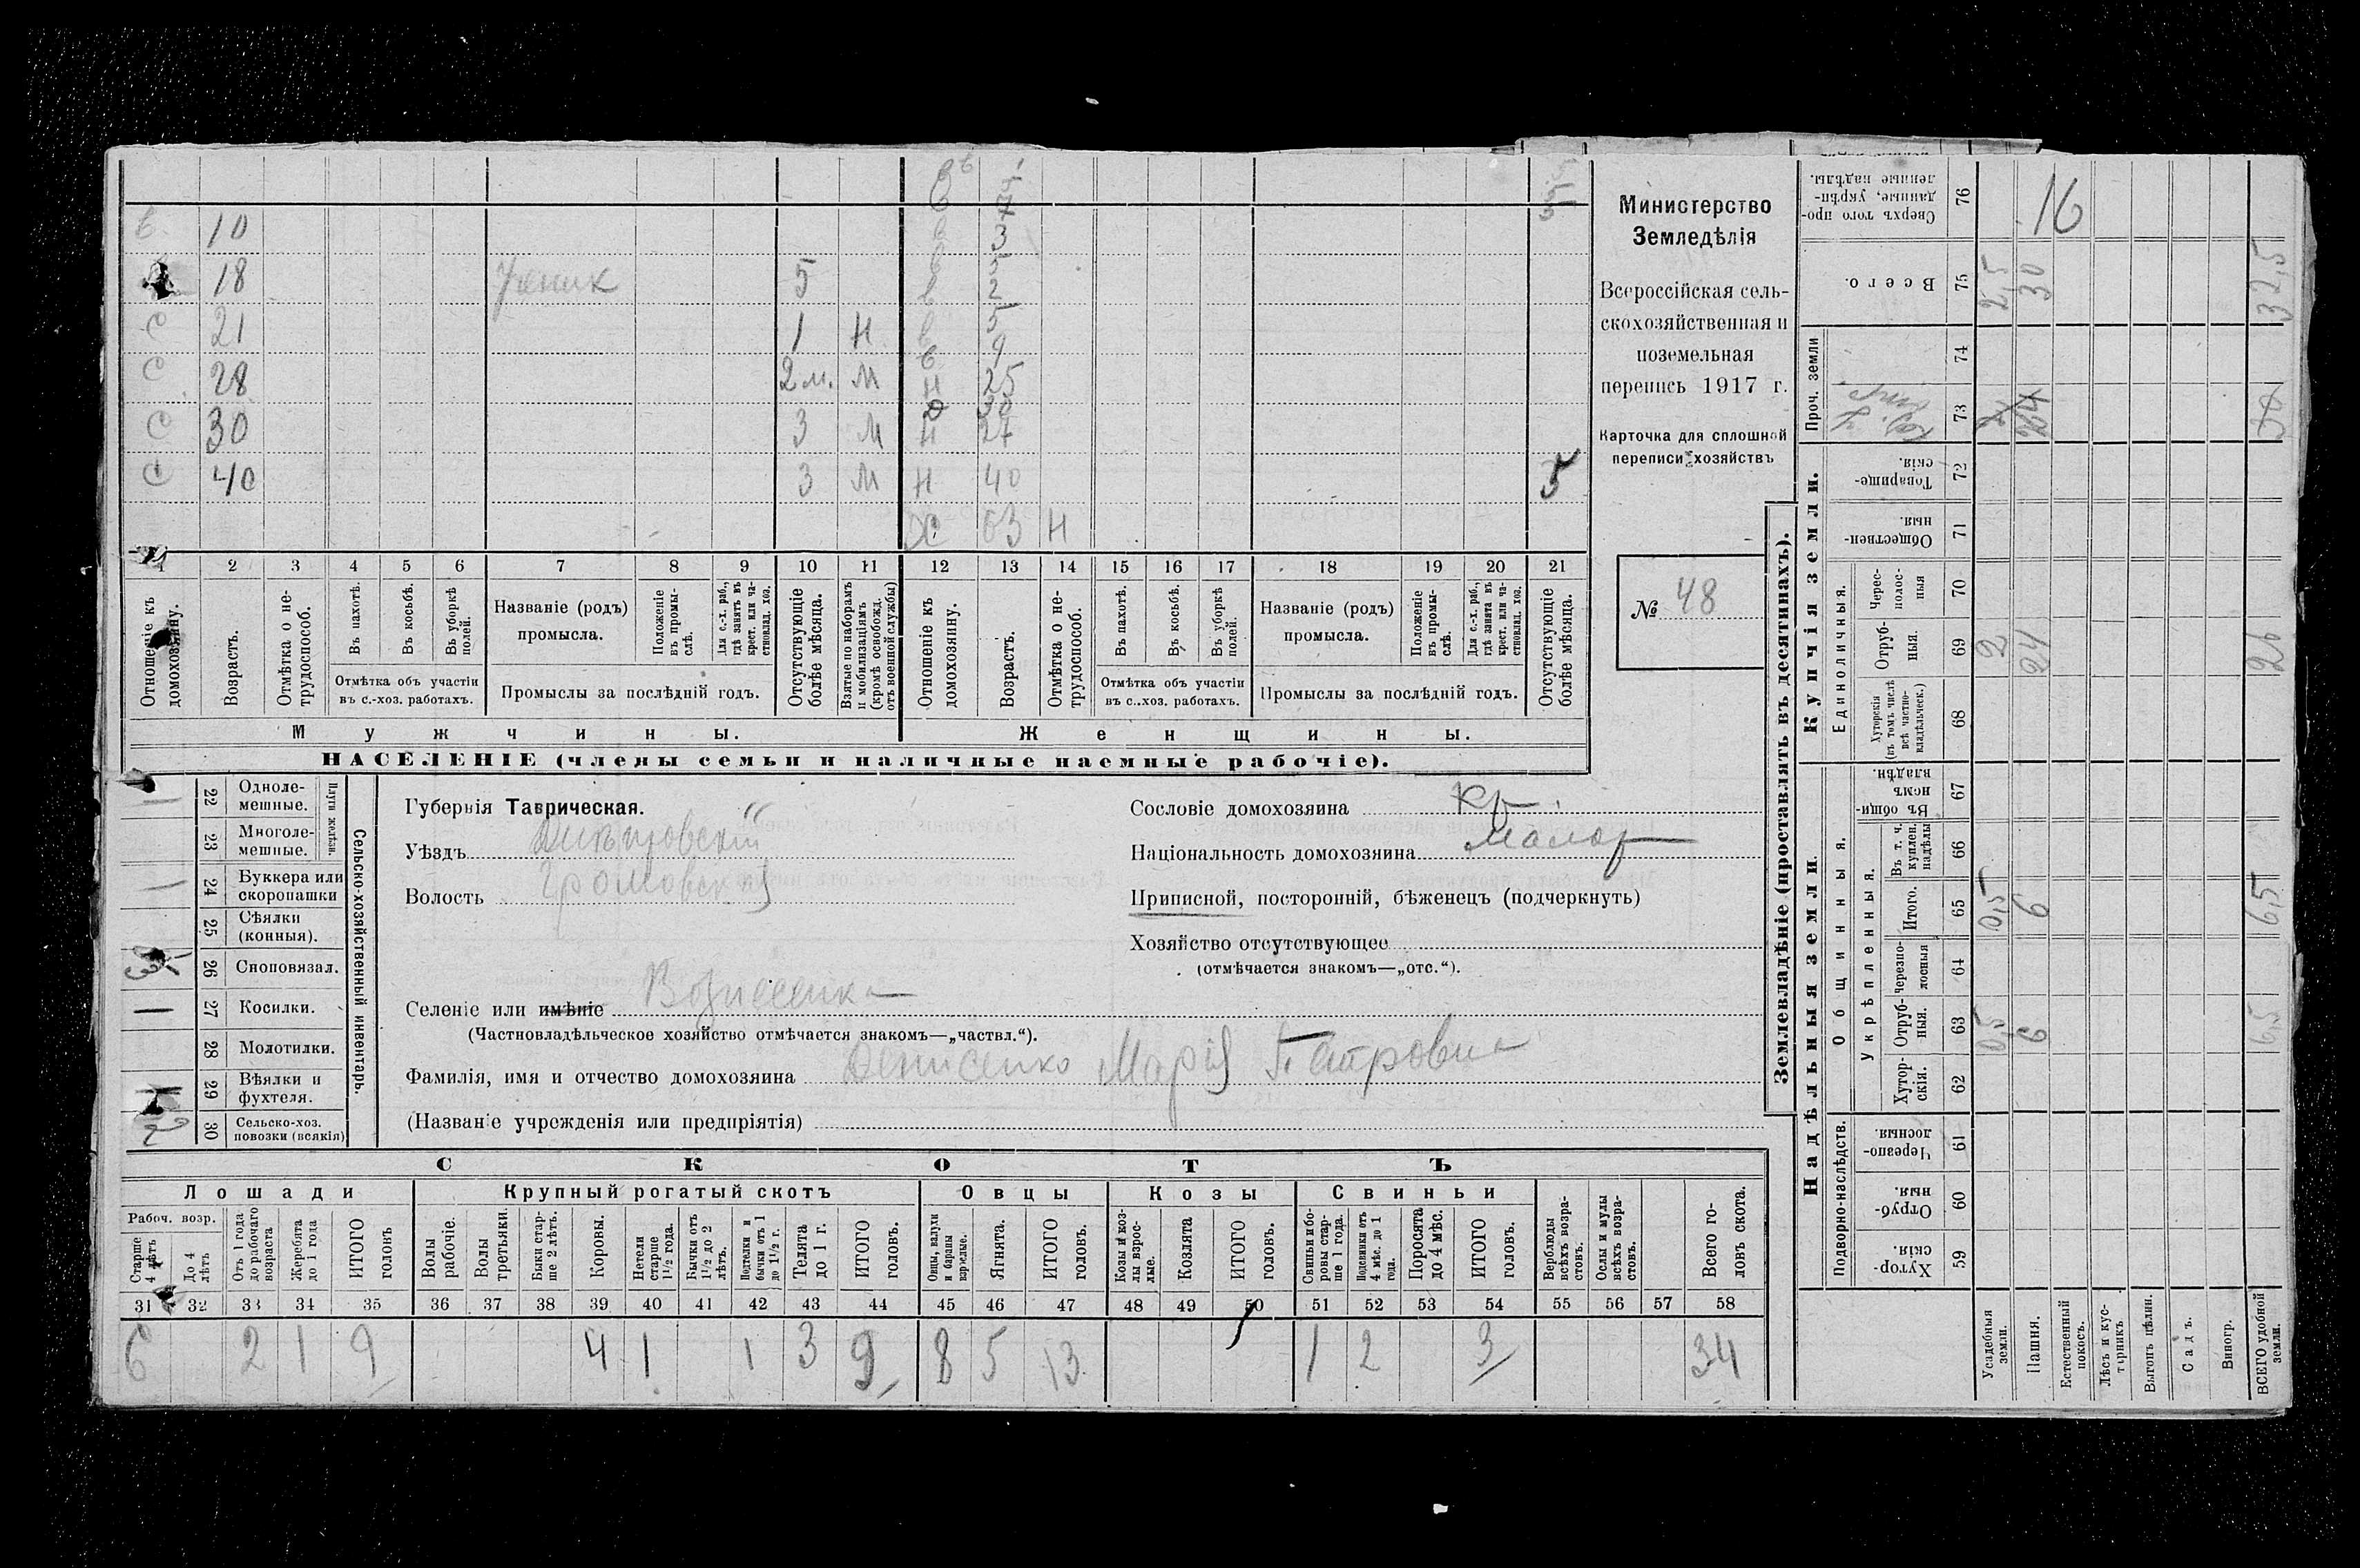 Министерство
Земледѣлія
Всероссійская сель-
скохозяйственная и
поземельная
перепись 1917 г.
Карточка для сплошной
переписи хозяйствъ
№ 48
в 10
18 Ученик 5
с 21 1 н
с 28 2 м. м
с 30 3 м
с 40 3 м
в 3
в 2
в 5
в 9
н 25
30
н 27
н 40 5
63 н
1 2 3 4 5 6 7 8 9 10 11 12 13 14 15 16 17 18 19 20 21
Отношеніе къ домохозяину.
Возрастъ.
Отмѣтка о не-трудоспособ.
Въ пахотѣ.
Въ косьбѣ.
Въ уборкѣ полей.
Отмѣтка объ участіи въ с.-хоз. работахъ.
Названіе (родъ) промысла.
Положеніе въ промы-слѣ.
Для с.-х. раб., гдѣ занятъ въ крест. или ча-стновлад. хоз.
Промыслы за послѣдній годъ.
Отсутствующіе болѣе мѣсяца.
Взятые по наборамъ и мобилизаціямъ (кромѣ освобожд. отъ военной службы)
Отношеніе къ домохозяину.
Возрастъ.
Отмѣтка о не-трудоспособ.
Въ пахотѣ.
Въ косьбѣ.
Въ уборкѣ полей.
Отмѣтка объ участіи въ с.-хоз. работахъ.
Названіе (родъ) промысла.
Положеніе въ промы-слѣ.
Для с.-х. раб., гдѣ занята въ крест. или ча-стновлад. хоз.
Промыслы за послѣдній годъ.
Отсутствующіе болѣе мѣсяца.
Мужчины. Женщины.
НАСЕЛЕНІЕ (члены семьи и наличные наемные рабочіе).
Сельско-хозяйственный инвентарь.
Плуги желѣзн.
22 Одноле-мешные. 1
23 Многоле-мешные.
24 Буккера или скоропашки 1
25 Сѣялки (конныя).
26 Сноповязал.
27 Косилки. 1
28 Молотилки.
29 Вѣялки и фухтеля. 1
30 Сельско-хоз. повозки (всякія) 2
Губернія Таврическая.
Уѣздъ
Волость Громовская
Селеніе или имѣніе Вознесенка
(Частновладѣльческое хозяйство отмѣчается знакомъ—„частвл.“).
Фамилія, имя и отчество домохозяина Денисенко Марія Петровна
(Названіе учрежденія или предпріятія)
Сословіе домохозяина Кр.
Національность домохозяина малор
Приписной, посторонній, бѣженецъ (подчеркнуть)
Хозяйство отсутствующее
(отмѣчается знакомъ—„отс.“).
СКОТЪ
Лошади
Рабоч. возр.
Старше 4 лѣтъ
До 4 лѣтъ
Отъ 1 года до рабочаго возраста
Жеребята до 1 года
ИТОГО головъ
Крупный рогатый скотъ
Волы рабочіе.
Волы третьяки.
Быки стар-ше 2 лѣтъ.
Коровы.
Нетели старше 1½ года.
Бычки отъ 1½ до 2 лѣтъ.
Подтелки и бычки отъ 1 до 1½ г.
Телята до 1 г.
ИТОГО головъ.
Овцы
Овцы, валухи и бараны взрослые.
Ягнята.
ИТОГО головъ.
Козы
Козы и коз-лы взрос-лые.
Козлята
ИТОГО головъ.
Свиньи
Свиньи и бо-ровы стар-ше 1 года.
Подсвинки отъ 4 мѣс. до 1 года.
Поросята до 4 мѣс.
ИТОГО головъ.
Верблюды всѣхъ возра-стовъ.
Ослы и мулы всѣхъ возра-стовъ.
Всего го-ловъ скота.
31 32 33 34 35 36 37 38 39 40 41 42 43 44 45 46 47 48 49 50 51 52 53 54 55 56 57 58
6 2 1 9 4 1 1 3 9 8 5 13 1 2 3 34
Землевладѣніе (проставлять въ десятинахъ).
Надѣльныя земли.
Подворно-наслѣдств.
Хутор-скія. 59
Отруб-ныя. 60
Черезпо-лосныя. 61
Общинныя.
Укрѣпленныя.
Хутор-скія. 62
Отруб-ныя. 63
Черезпо-лосныя 64
Итого. 65
Въ т. ч. куплен. надѣлы 66
Въ общи-номъ владѣн. 67
Купчія земли.
Единоличныя.
Хуторскія (въ томъ числѣ всѣ частно-владѣльческ.) 68
Отруб-ныя. 69
Черес-полос-ныя 70
Обществен-ныя. 71
Товарище-скія. 72
Проч. земли
73
74
Всего. 75
Сверхъ того про-данные, укрѣп-ленные надѣлы. 76
Усадебныя земли. 0,5 0,5 2 2,5
Пашня. 6 6 24 24 30 16
Естественный покосъ.
Лѣсъ и кус-тарникъ
Выгонъ цѣлин.
Садъ.
Виногр.
ВСЕГО удобной земли. 6,5 6,5 26 32,5